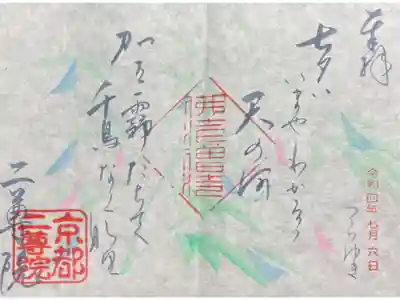 奉拝
七夕ハ
いまやわかるゝ
天の河
つらゆき
令和四年 七月 六日
加王霧たちて
千鳥なくなり
二尊院
京都
二尊院